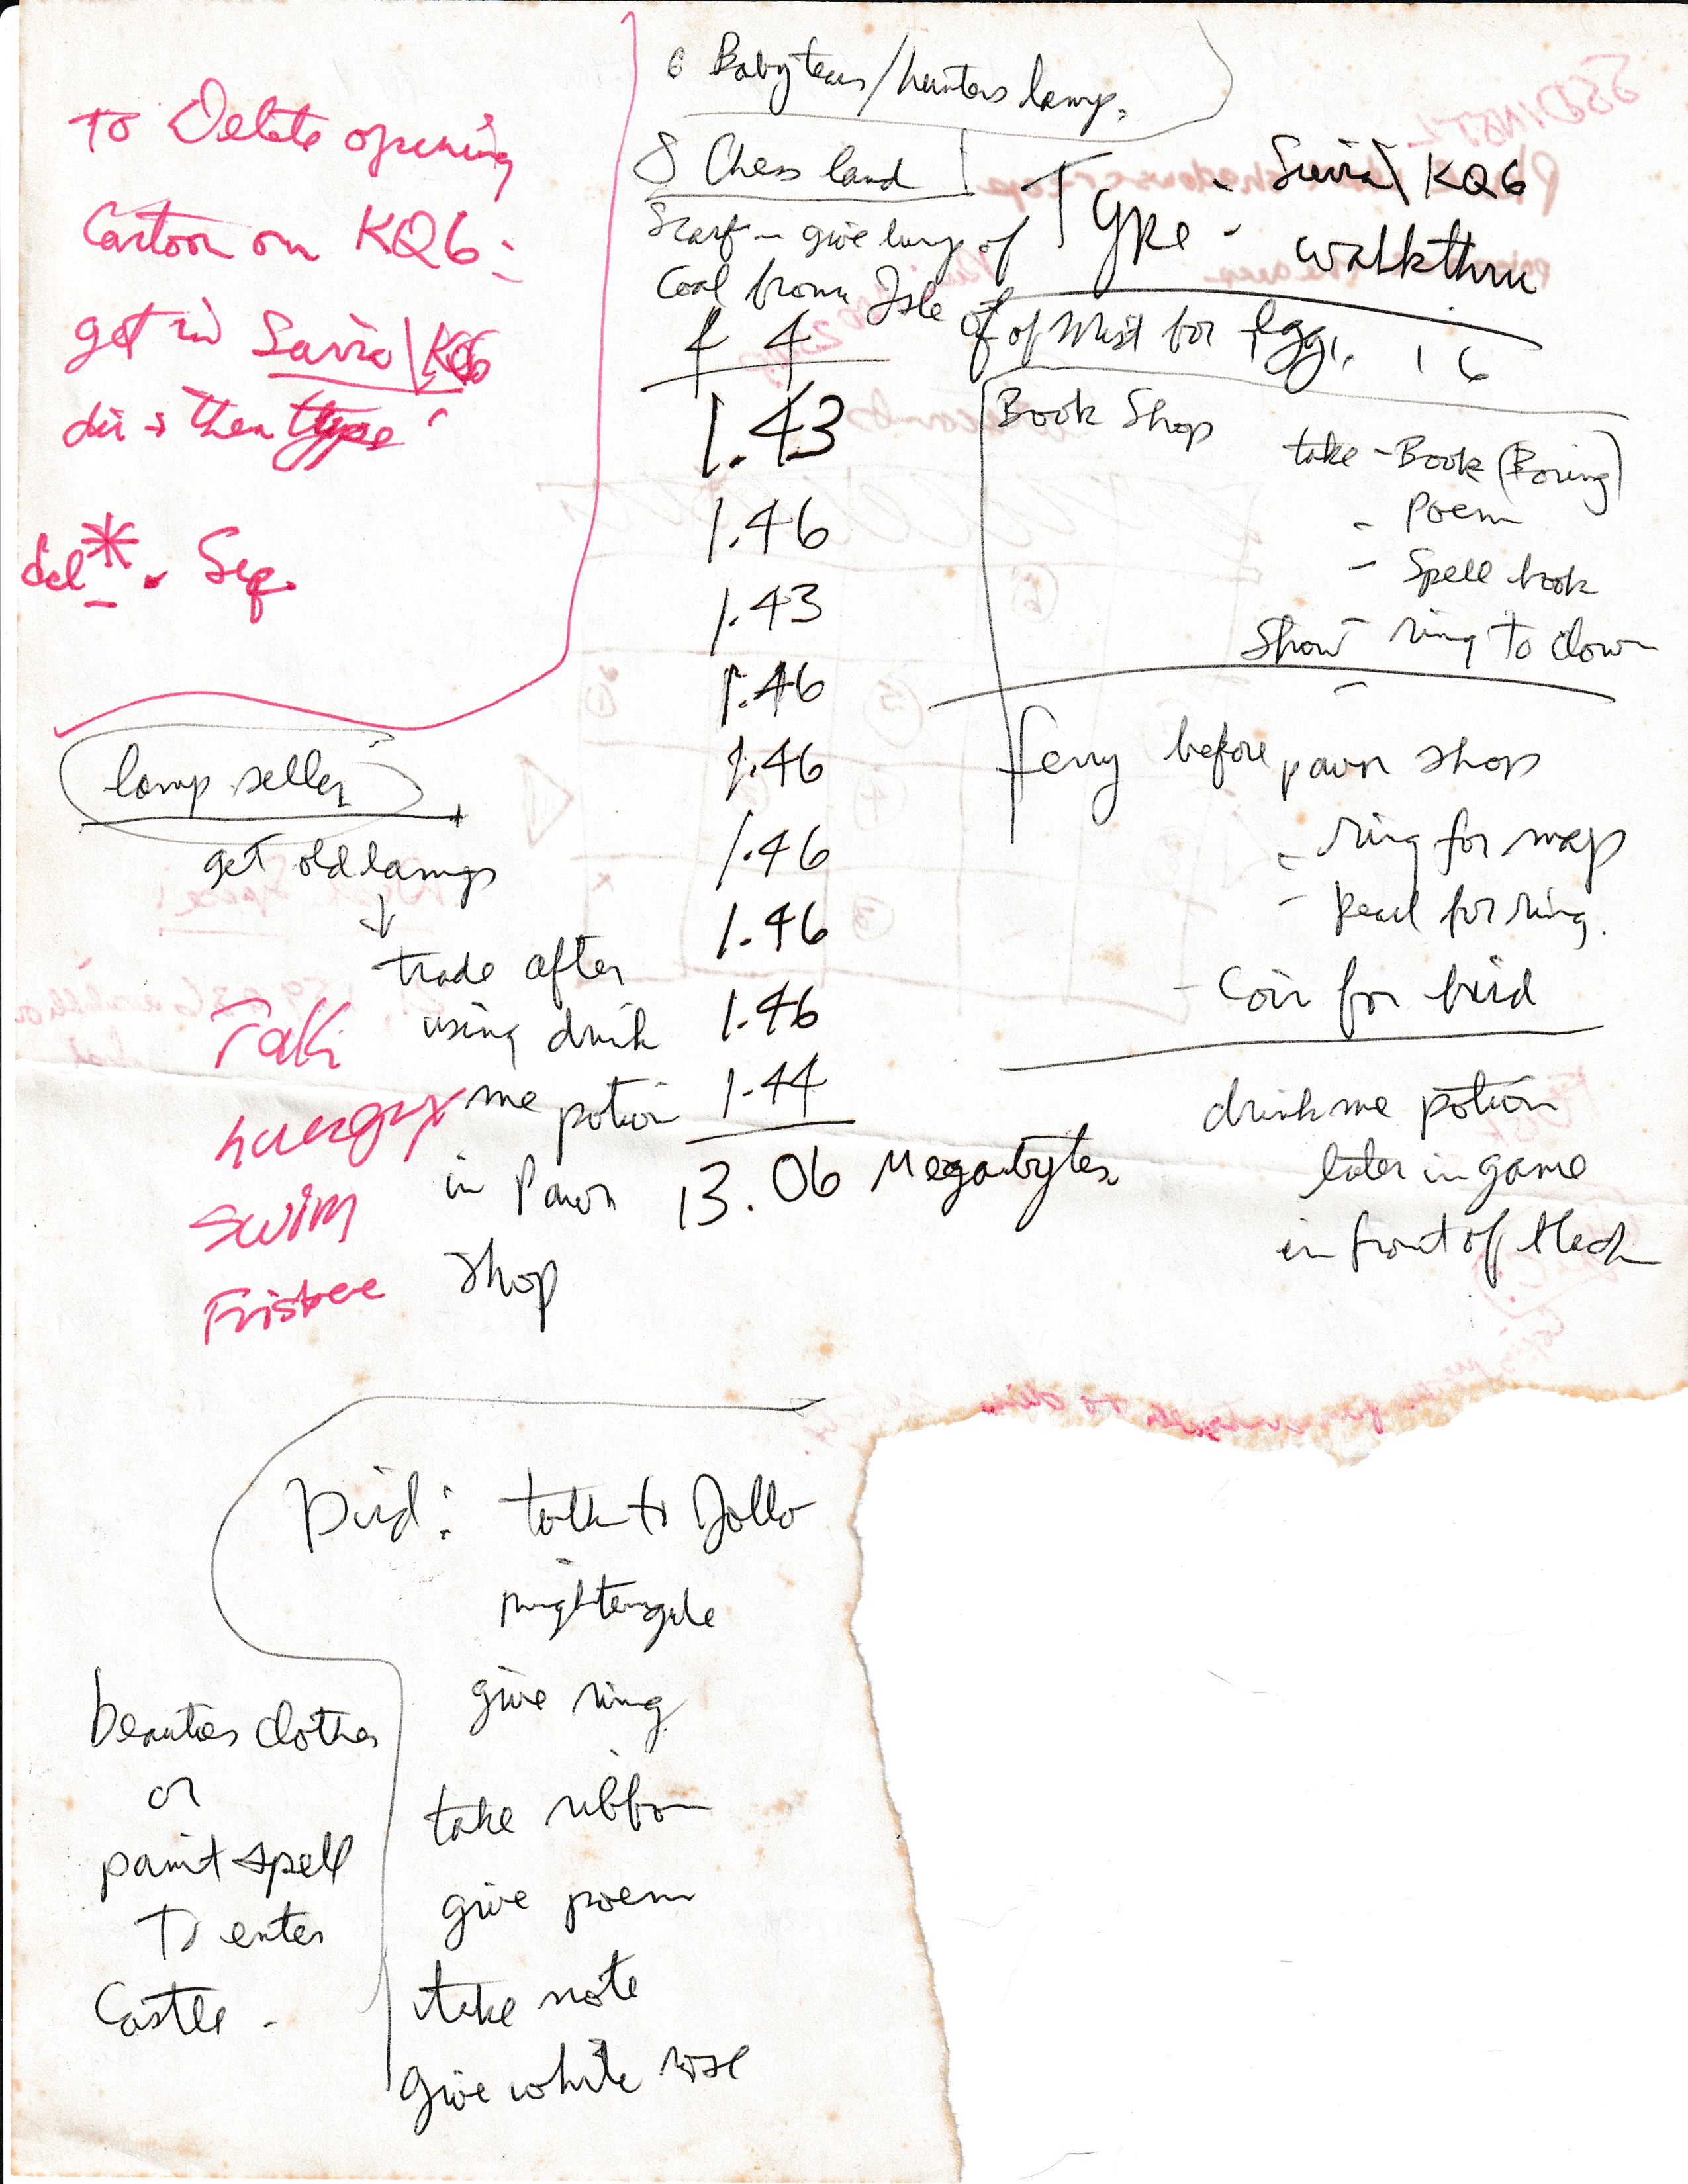 To Delete opening
Cartoon on KQ6:
get in Sierra\KQ6
dir → then type
del *. Seq.
6 Baby tears/hunters lamp.
8 Chess land
Scarf - give lump of
Coal from Isle of of Mist for Egg.
Type - Sierra\KQ6
walkthru
16
4 4
1.43
1.46
1.43
1.46
1.46
1.46
1.46
1.46
1.44
13.06 Megabytes
Book Shop
take - Book (Boring)
- Poem
- Spell book
Show ring to clown
ferry before pawn shop
- ring for map
- Pearl for ring.
- Coin for bird
drink me potion
later in game
in front of
lamp seller
get old lamp
↓
trade after
using drink
me potion
in Pawn
shop
Talk
hungry
swim
Frisbee
Bird: talk to Jollo
nightengale
give ring
take ribbon
give poem
take note
give white rose
beauties clothes
or
paint spell
To enter
Castle.